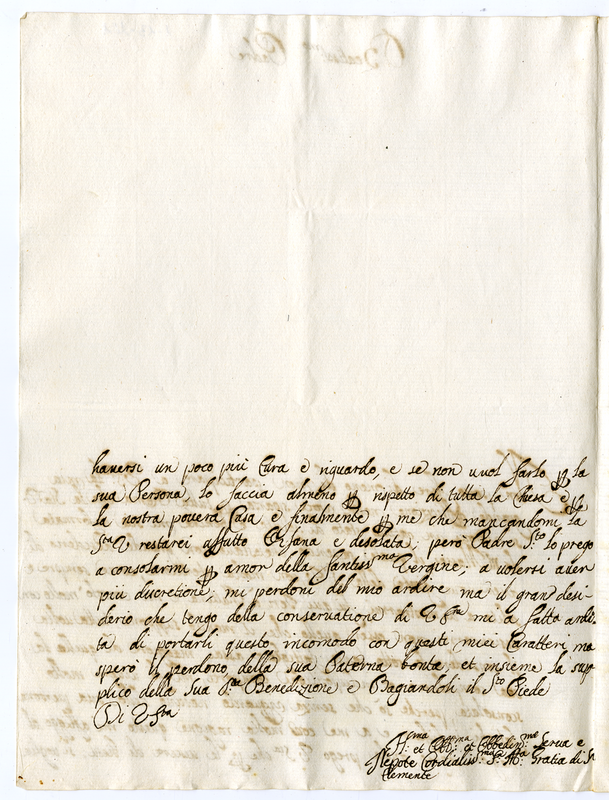 haversi un poco più Cura e riguardo, e se non vuol farlo per la
sua Persona, lo faccia almeno per rispetto di tutta la Chiesa e per
la nostra povera Casa e finalmente per me che mancandomi la
Sta V restarei affatto Orfana e desolata; però Padre S.to lo prego
a consolarmi per amor della Santissma Vergine; a volersi aver
più discretione; mi perdoni del mio ardire ma il gran desi-
derio che tengo della conservatione di V Sta mi a fatto
ta di portarli questo incomodo con questi miei Caratteri ma
spero il perdono della sua Paterna bontà et insieme la sup
plico della Sua Benedizione e Bagiandoli il S.to Piede
Di V Sta
et et Obbedin.me Serva e
Nepote Cordialiss.ma Gratia di S.
Clemente